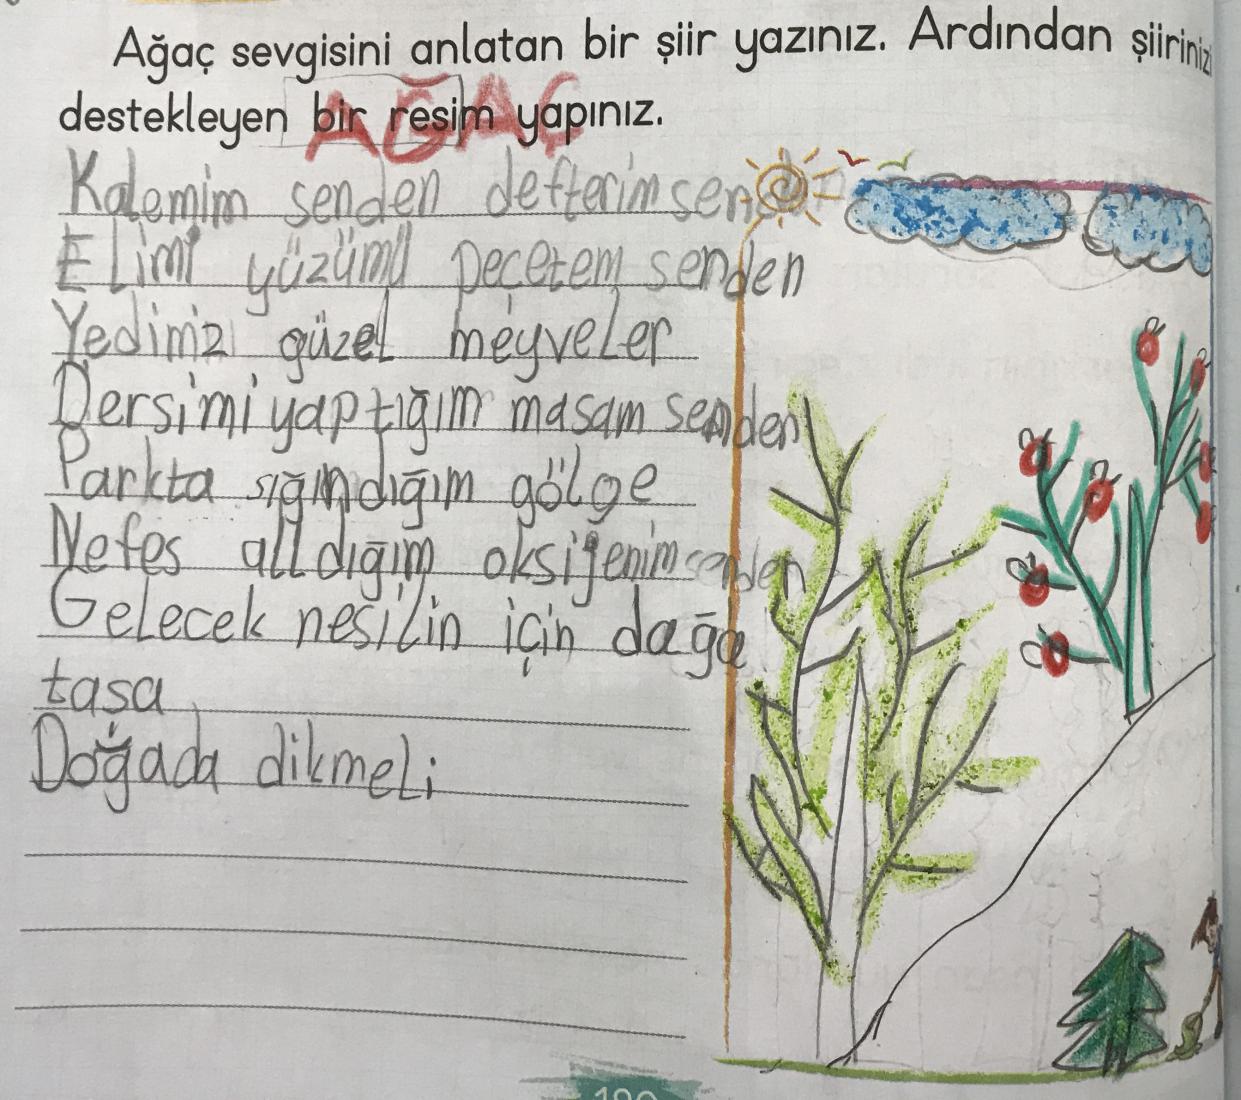 Ağaç sevgisini anlatan bir şiir yazınız. Ardından şiirinizi
destekleyen bir resim yapınız.
AĞAÇ
Kalemim senden defterim senden
Elimi yüzümü peçetem senden
Yedimiz güzel meyveler
Dersimi yaptığım masam senden
Parkta sığındığım gölge
Nefes alldığım oksijenim senden
Gelecek nesilin için dağa
tasa
Doğada dikmeli